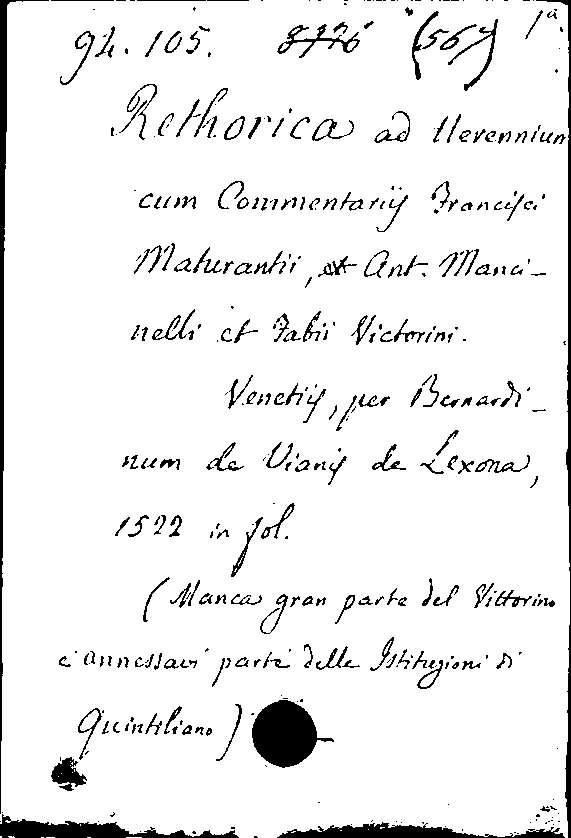 94. 105. 8776 (564) 1ª.
Rethorica ad Herennium
cum Commentariis Francisci
Maturantii, et Ant. Manci-
nelli et Fabii Victorini.
Venetiis, per Bernardi-
num de Vianis de Lexona,
1522 in fol.
(Manca gran parte del Vittorino
e annessavi parte delle Istituzioni di
Quintiliano)